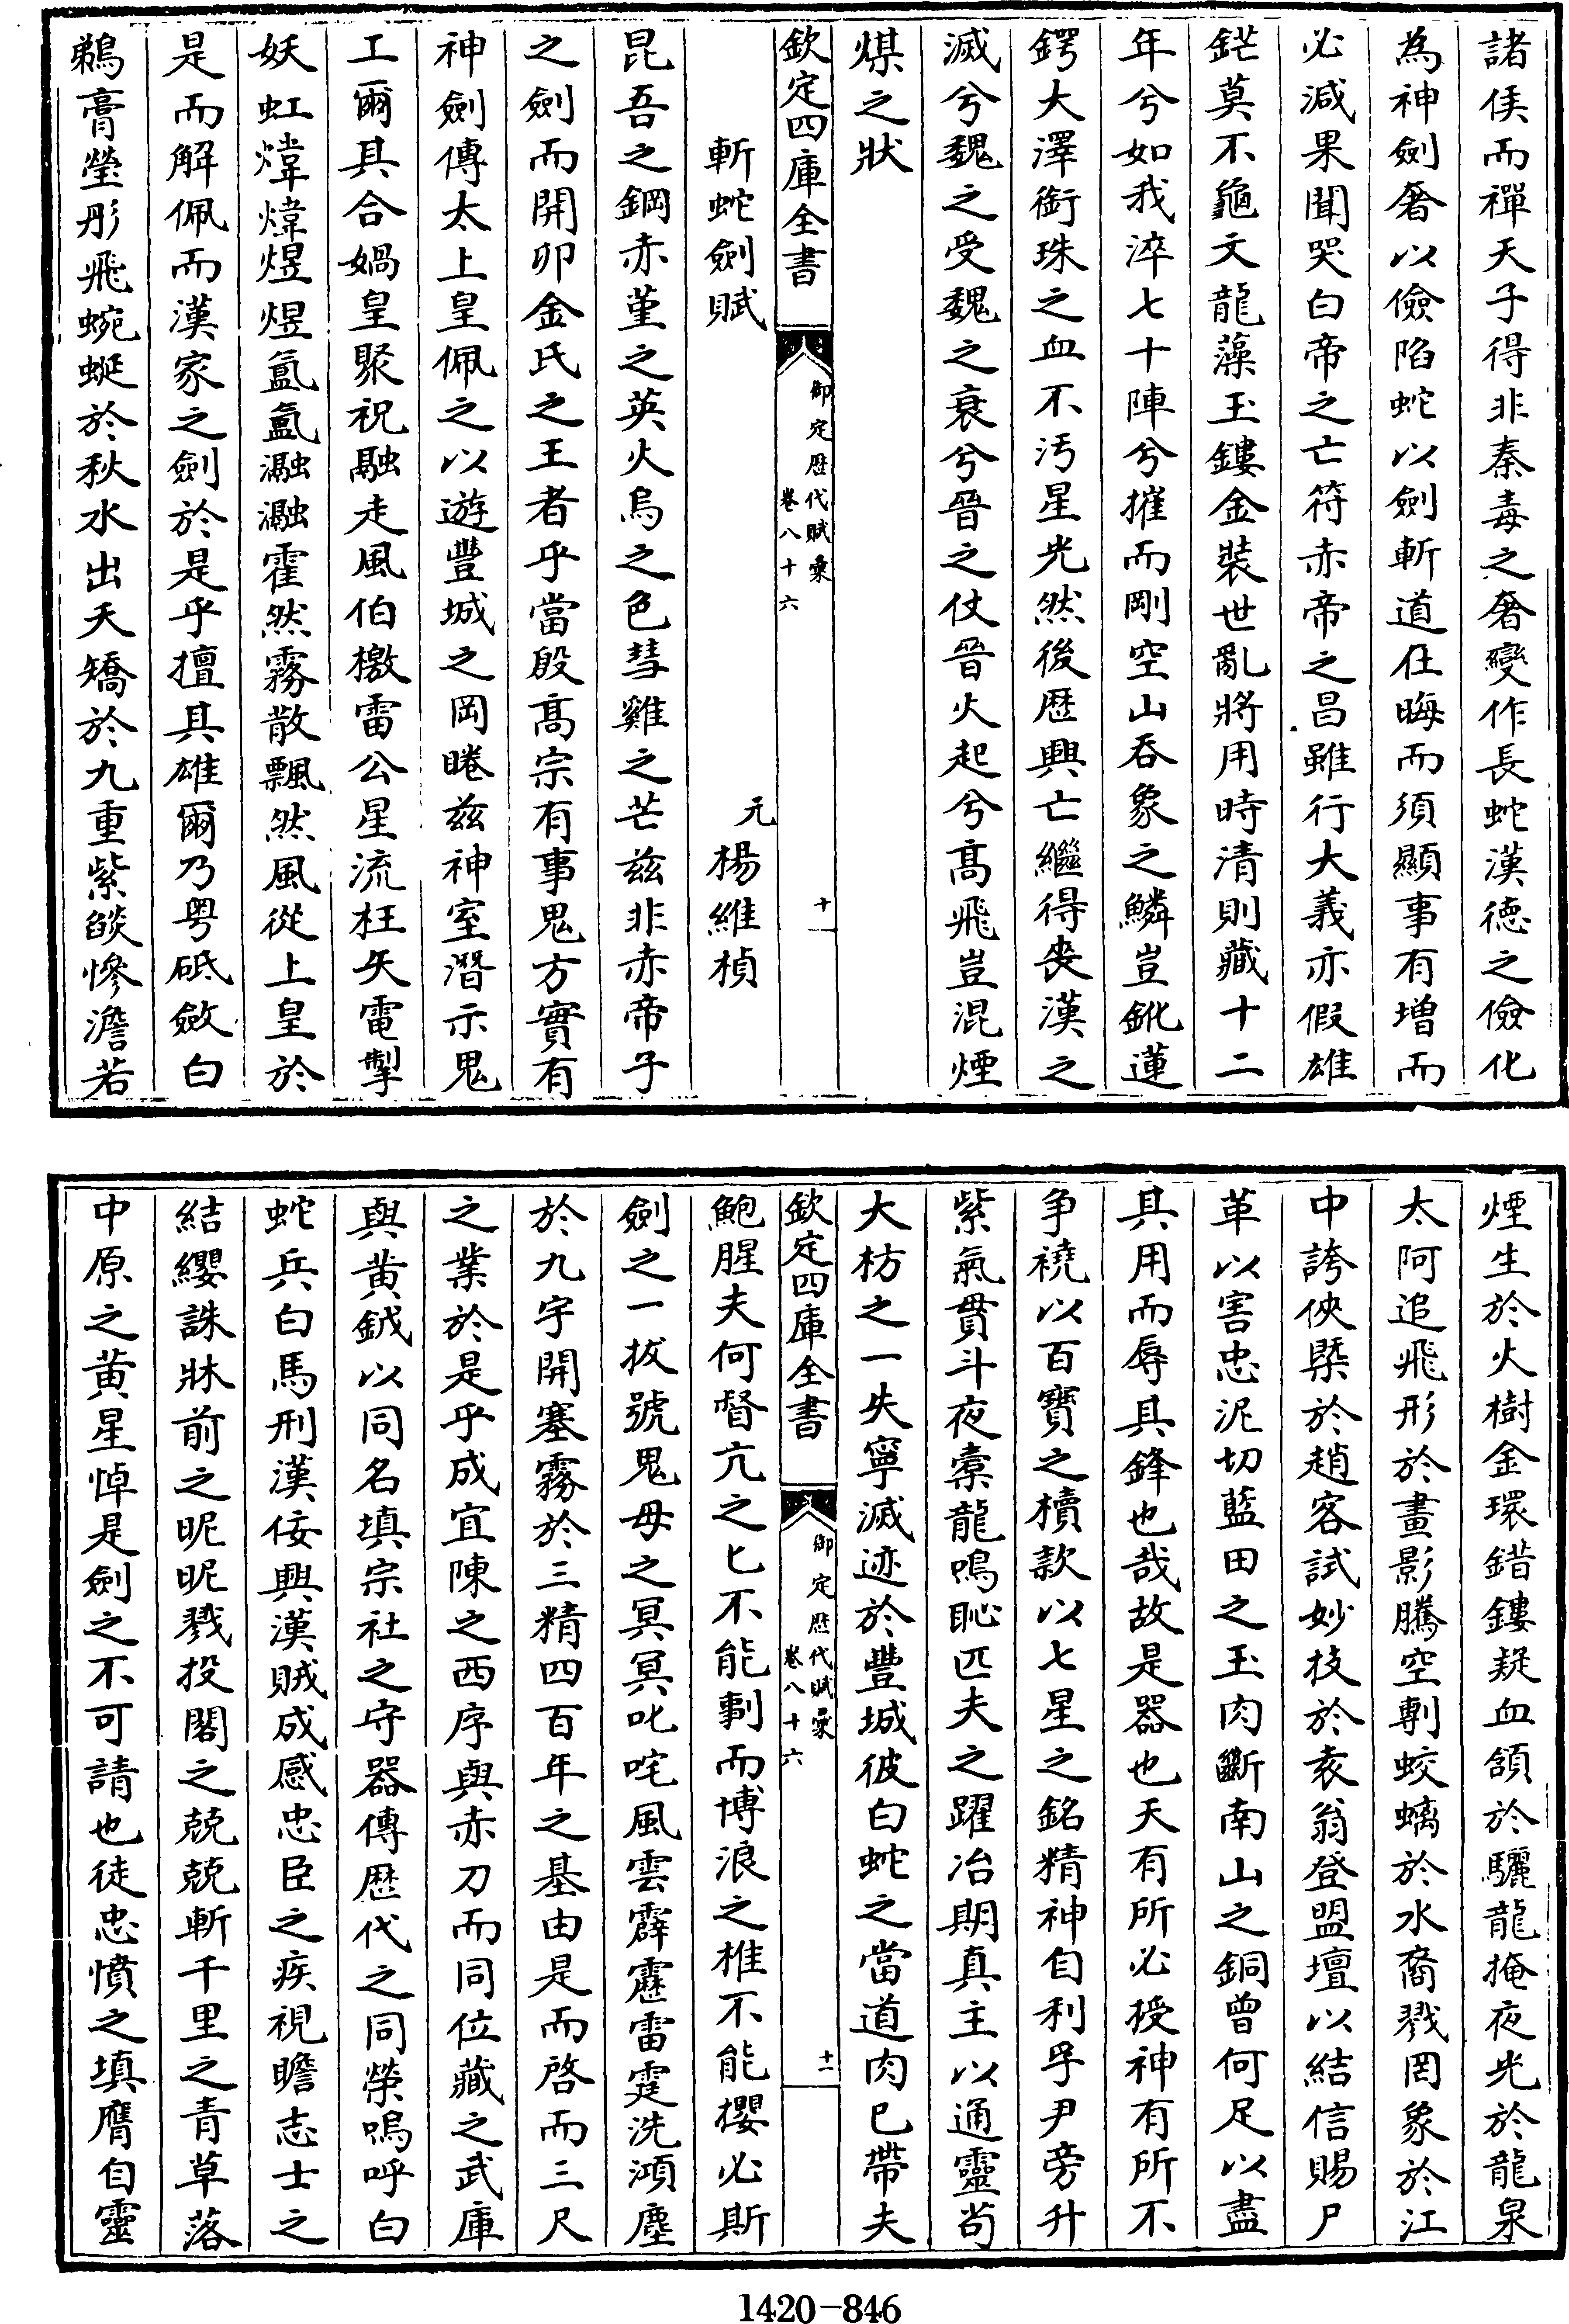 諸侯而禪天子得非秦毒之奢變作長蛇漢德之儉化
為神劍奢以儉陷蛇以劍斬道在晦而須顯事有増而
必減果聞哭白帝之亡符赤帝之昌雖行大義亦假雄
鋩莫不龜文龍藻玉鏤金裝世亂將用時清則藏十二
年兮如我淬七十陣兮摧而剛空山吞象之鱗豈鈋蓮
鍔大澤銜珠之血不汚星光然後歴興亡繼得喪漢之
滅兮魏之受魏之衰兮晉之仗晉火起兮髙飛豈混煙
煤之狀
欽定四庫全書
御定歴代賦彙
卷八十六
十一
斬蛇劍賦
元楊維楨
昆吾之鋼赤堇之英火烏之色彗雞之芒兹非赤帝子
之劍而開卯金氏之王者乎當殷髙宗有事鬼方實有
神劍傳太上皇佩之以遊豐城之岡睠兹神室潛示鬼
工爾其合媧皇聚祝融走風伯檄雷公星流枉矢電掣
妖虹煒煒煜煜氳氳瀜瀜霍然霧散飄然風從上皇於
是而解佩而漢家之劍於是乎擅其雄爾乃粤砥斂白
鵜膏瑩彤飛蜿蜒於秋水出天矯於九重紫燄慘澹若
煙生於火樹金環錯鏤疑血頷於驪龍掩夜光於龍泉
太阿追飛形於畫影騰空剸蛟螭於水裔戮罔象於江
中誇俠槩於趙客試妙技於袁翁登盟壇以結信賜尸
革以害忠泥切藍田之玉肉斷南山之銅曾何足以盡
其用而辱其鋒也哉故是器也天有所必授神有所不
争襓以百寶之櫝款以七星之銘精神自利孚尹旁升
紫氣貫斗夜橐龍鳴恥匹夫之躍冶期真主以通靈茍
大枋之一失寧滅迹於豐城彼白蛇之當道肉已帶夫
欽定四庫全書
御定歴代賦彙
卷八十六
十一
鮑腥夫何督亢之匕不能剚而博浪之椎不能攖必斯
劍之一拔號鬼母之冥冥叱咤風雲霹靂雷霆洗澒塵
於九宇開塞霧於三精四百年之基由是而啓而三尺
之業於是乎成宜陳之西序與赤刀而同位藏之武庫
與黄鉞以同名填宗社之守器傳歴代之同榮嗚呼白
蛇兵白馬刑漢佞興漢賊成感忠臣之疾視瞻志士之
結纓誅牀前之昵昵戮投閣之兢兢斬千里之青草落
中原之黄星悼是劍之不可請也徒忠憤之填膺自靈
1420-846